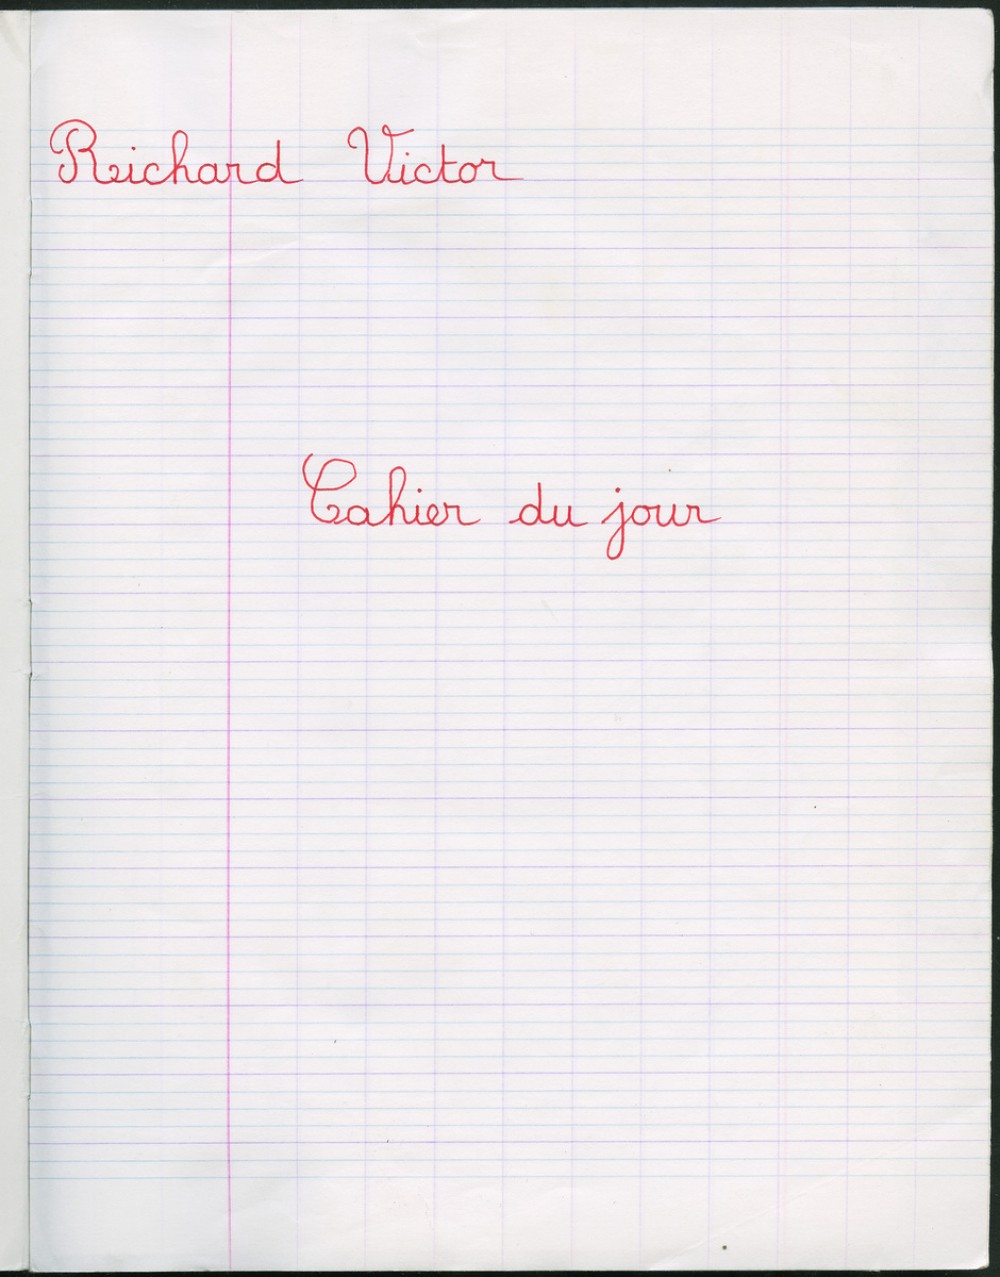 Reichard Victor
Cahier du jour